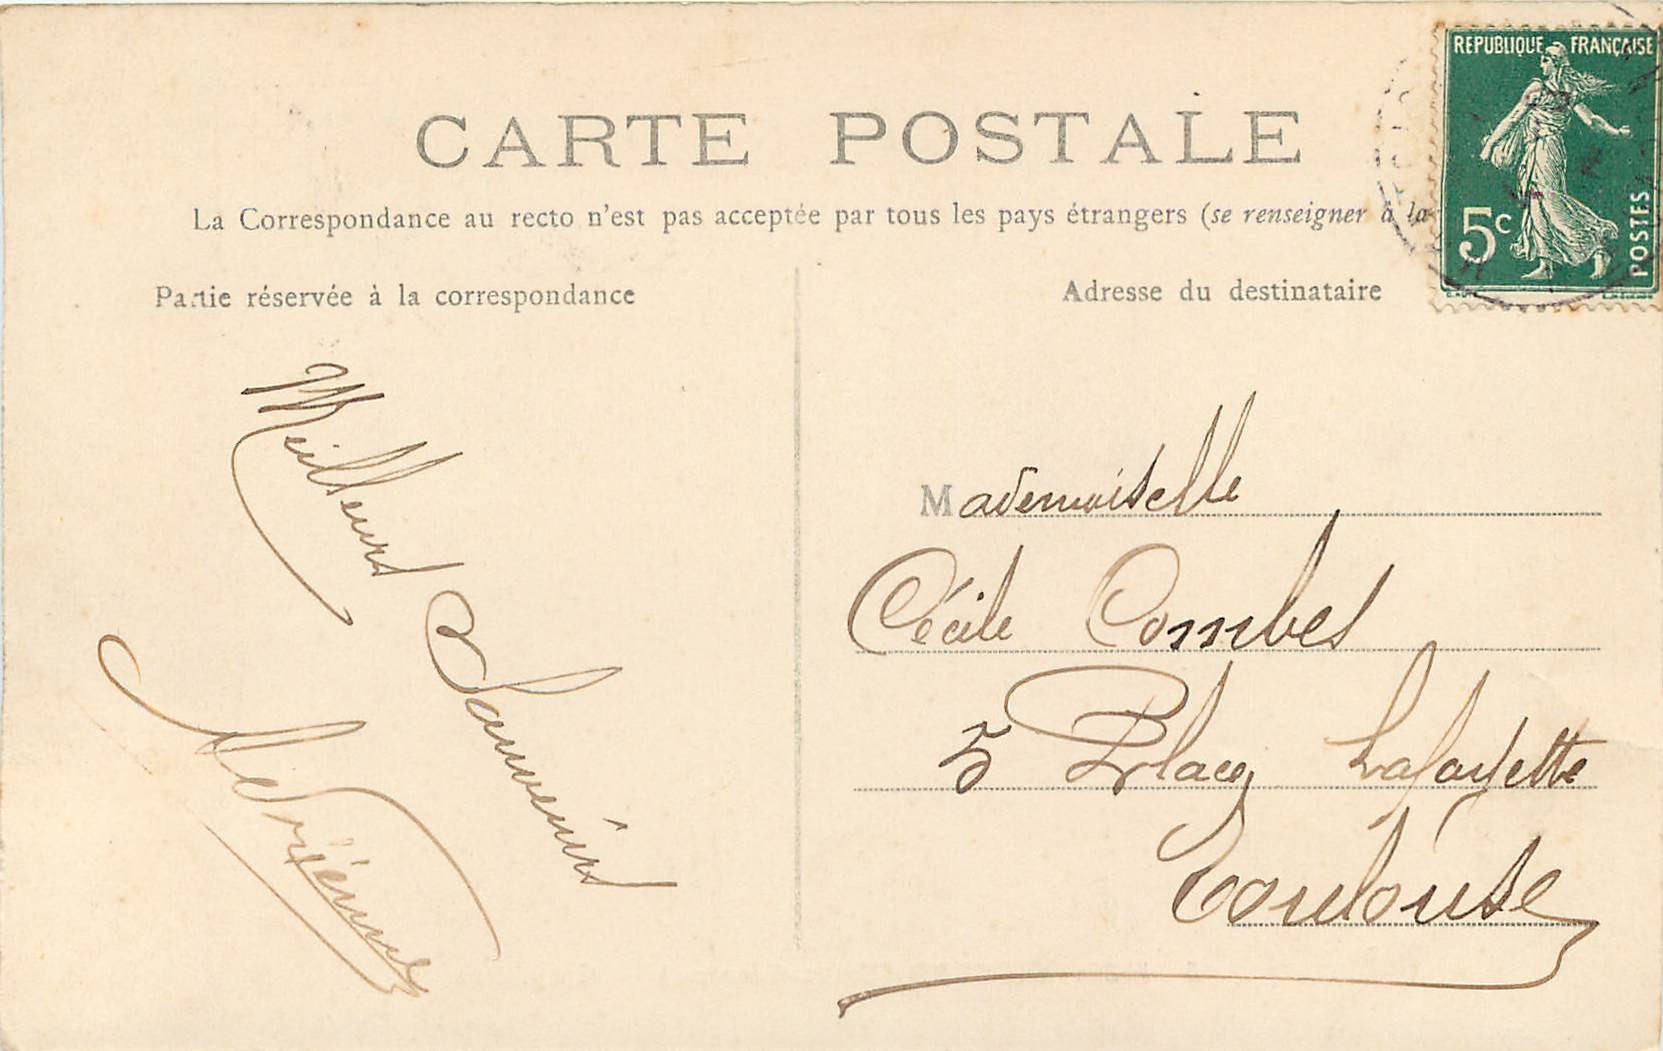 CARTE POSTALE
La Correspondance au recto n'est pas acceptée par tous les pays étrangers (se renseigner à la
Partie réservée à la correspondance
Adresse du destinataire
REPUBLIQUE FRANÇAISE
5c
POSTES
Meilleurs
Souvenirs
Adrienne
Mademoiselle
Cécile Combes
5 Place Lafayette
Toulouse